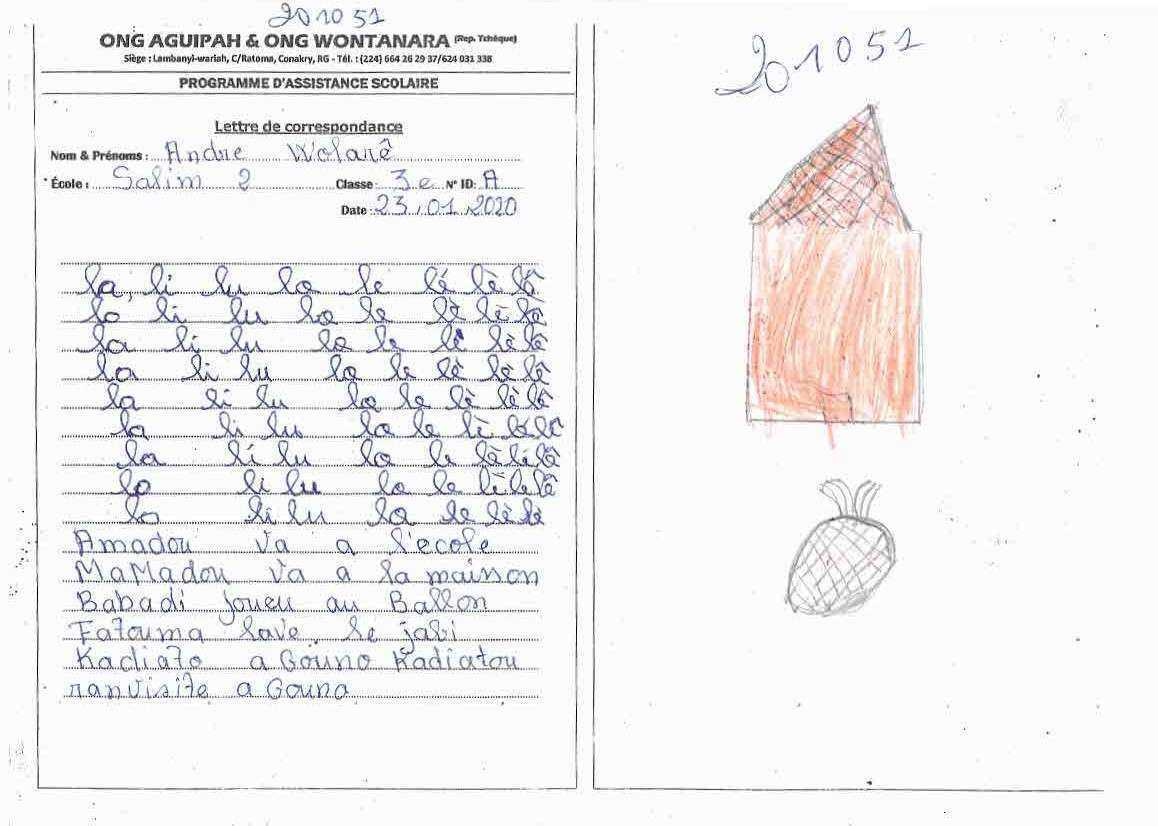 201051
ONG AGUIPAH & ONG WONTANARA (Rep. Tchèque)
Siège : Lambanyi-wariah, C/Ratoma, Conakry, RG - Tél. : (224) 664 26 29 37/624 031 338
PROGRAMME D'ASSISTANCE SCOLAIRE
Lettre de correspondance
Nom & Prénoms : Andre Wolarê
École : Salim 2 Classe : 3e N° ID: A
Date : 23.01.2020
la, li lu lo le lé lè lê
lo li lu lo le lè lè lê
la li lu lo le lé lè lê
la li lu lo le lè lè lê
la li lu lo le lè lè lê
la li lu lo le lè lê
la li lu lo le lè lê
lo li lu lo le lè le lê
lo li lu lo le lè lè
Amadou va a l'ecole
MaMadou va a la maison
Babadi joueu au Ballon
Fatouma lave. le jabi
Kadiato a Gouno Kadiatou
ranvisite a Gouna
201051